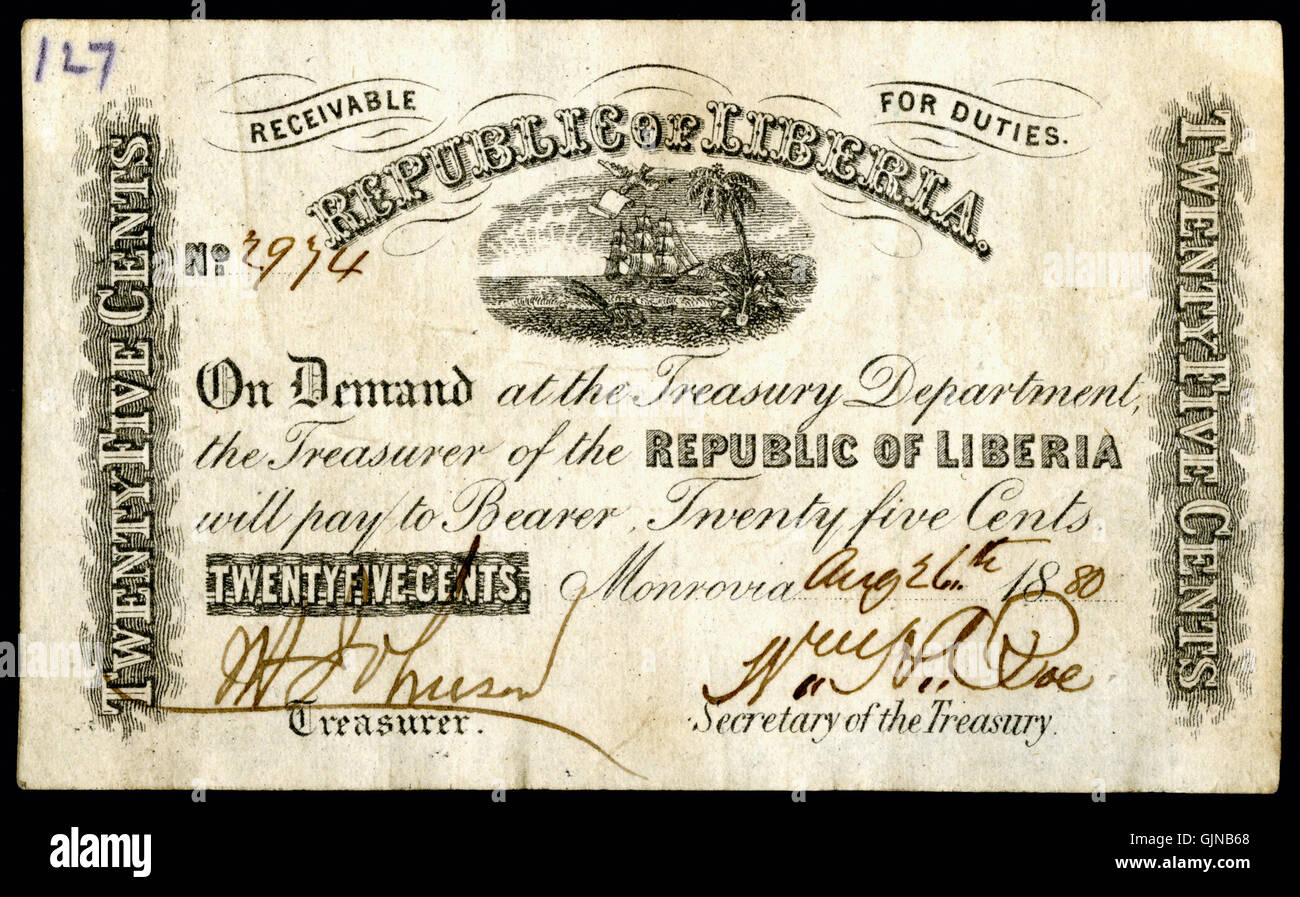 127
RECEIVABLE FOR DUTIES.
REPUBLIC OF LIBERIA.
No. 2974
TWENTY FIVE CENTS
TWENTY FIVE CENTS
On Demand at the Treasury Department,
the Treasurer of the REPUBLIC OF LIBERIA
will pay to Bearer, Twenty five Cents
TWENTY FIVE CENTS. Monrovia Aug 26th 1880
Johnson
Roe
Treasurer. Secretary of the Treasury.
alamy
alamy stock photo
GJNB68
www.alamy.com